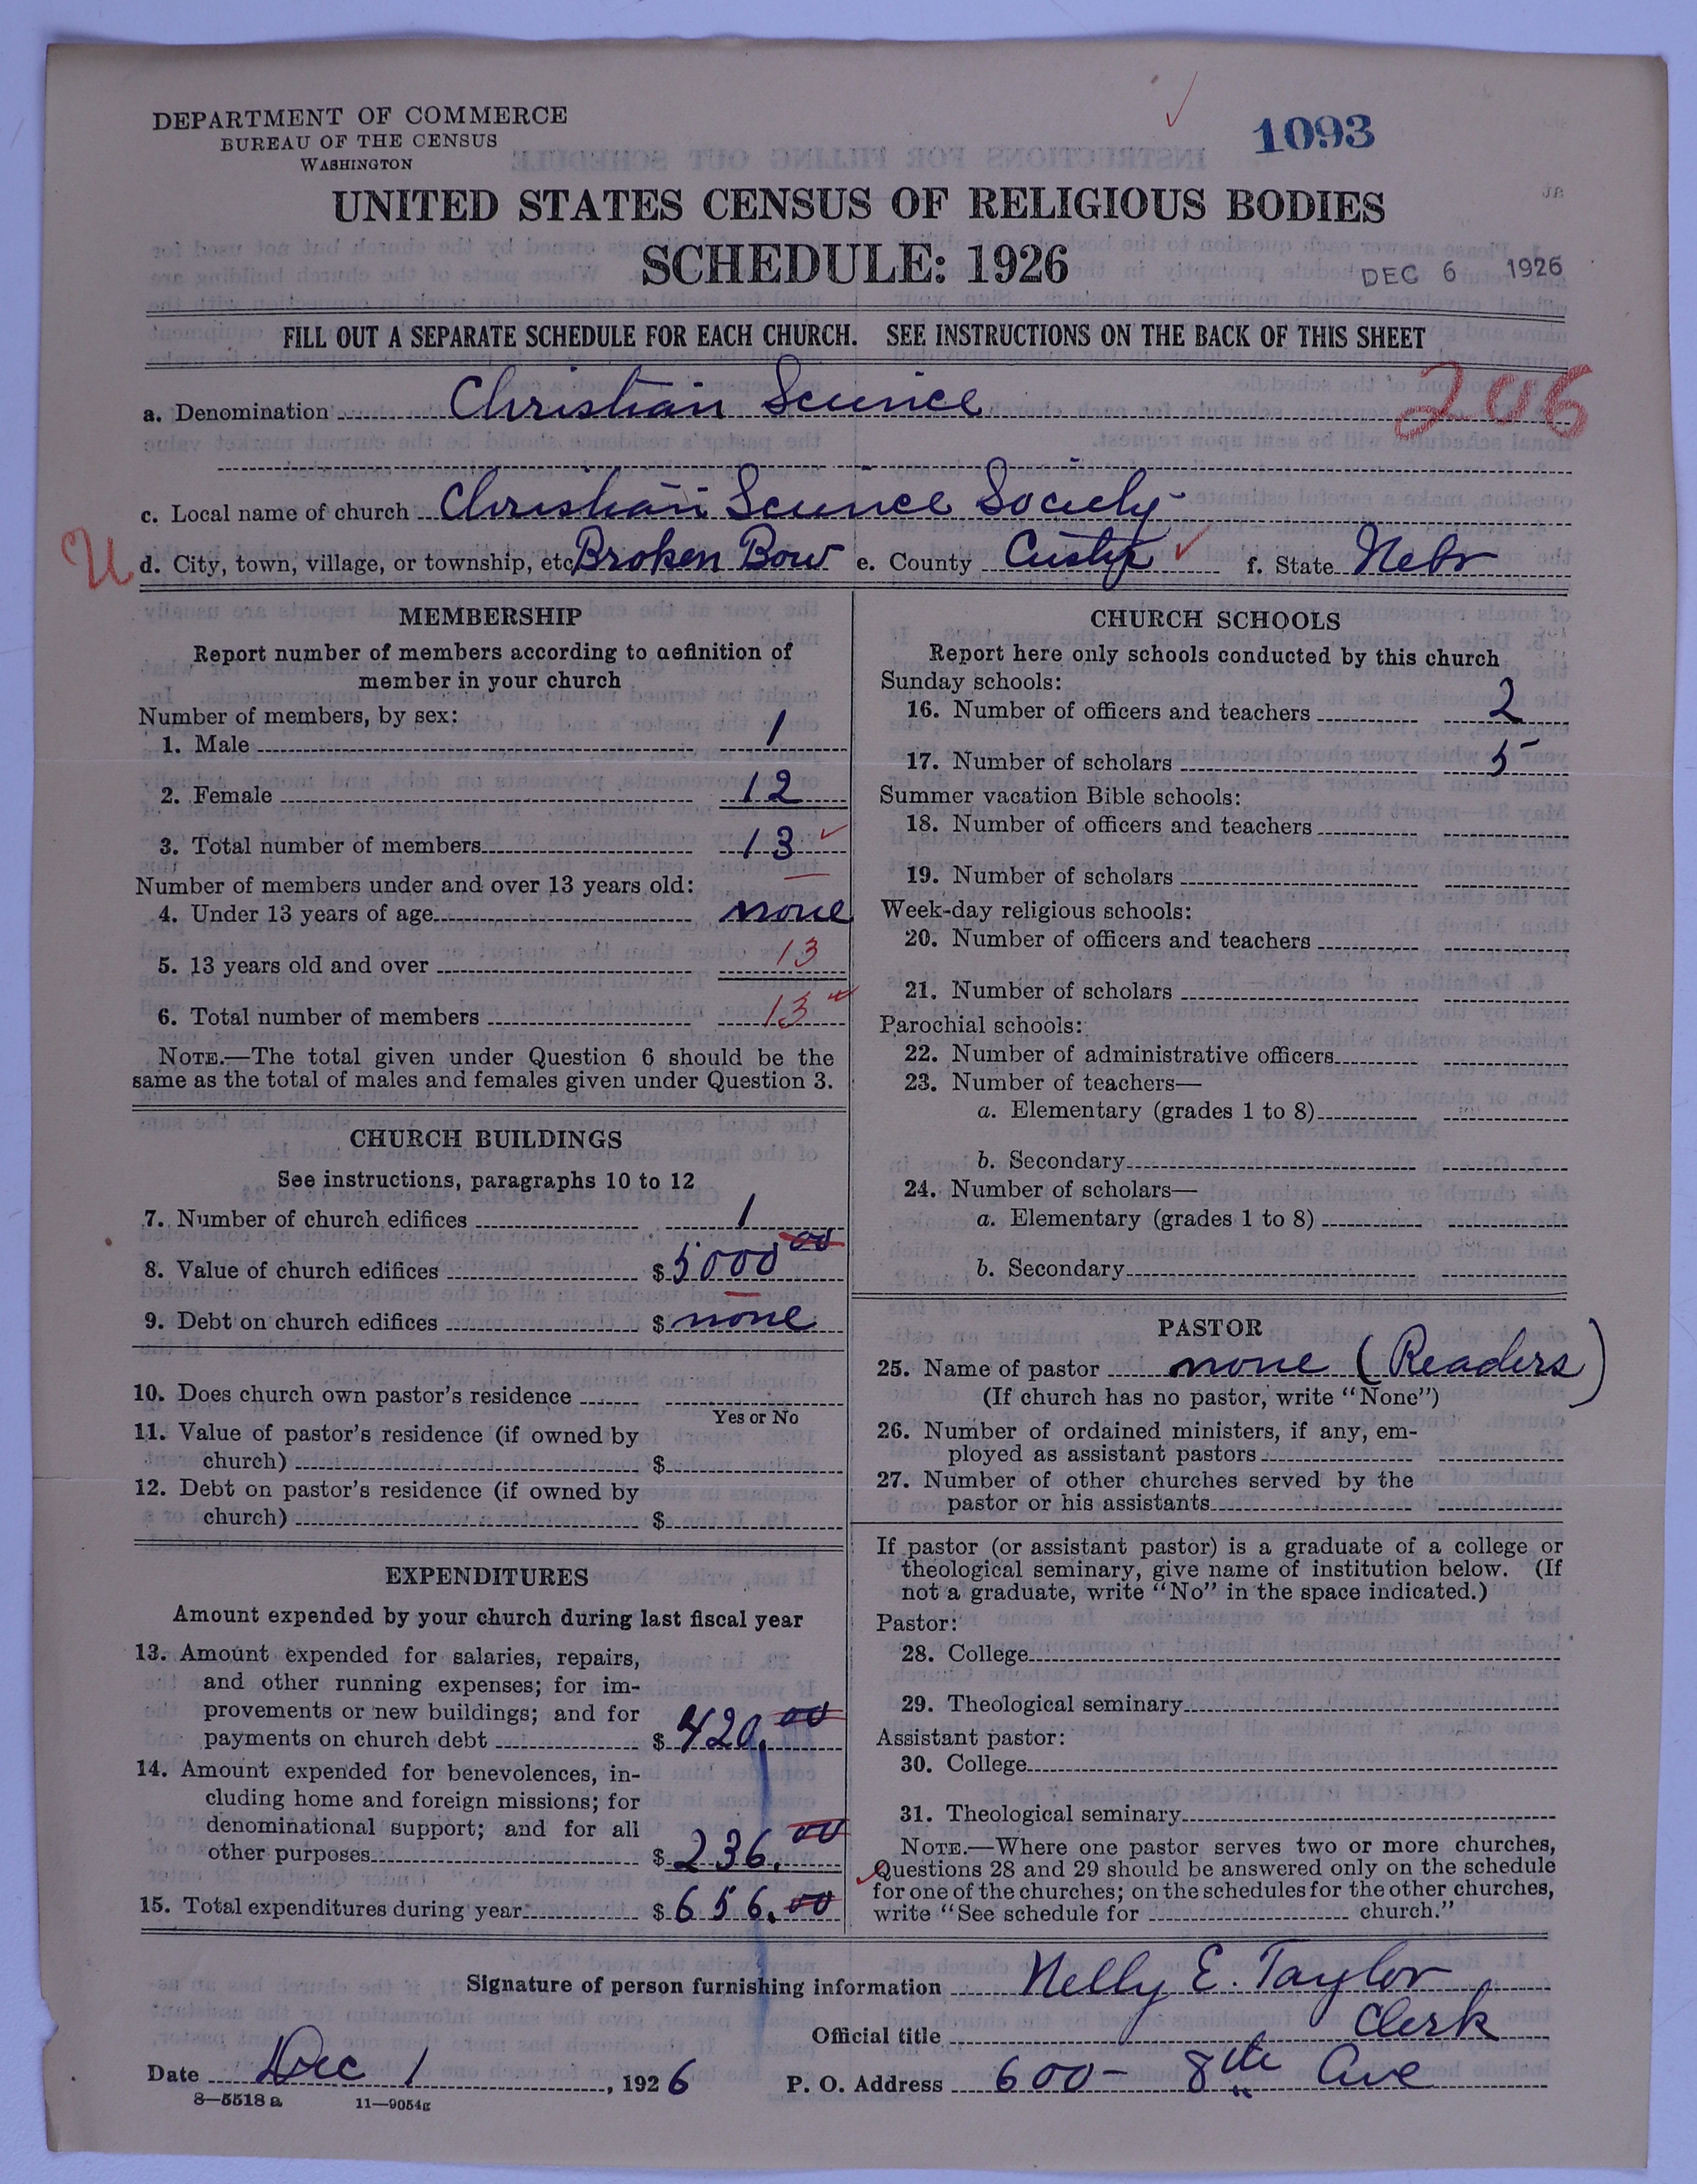 DEPARTMENT OF COMMERCE
BUREAU OF THE CENSUS
WASHINGTON
1093
UNITED STATES CENSUS OF RELIGIOUS BODIES
SCHEDULE: 1926
DEC 6 1926
FILL OUT A SEPARATE SCHEDULE FOR EACH CHURCH. SEE INSTRUCTIONS ON THE BACK OF THIS SHEET
a. Denomination Christian Science
206
c. Local name of church Christian Science Society
U
d. City, town, village, or township, etc. Broken Bow e. County Custer f. State Nebr
MEMBERSHIP
Report number of members according to definition of
member in your church
Number of members, by sex:
1. Male 1
2. Female 12
3. Total number of members 13
Number of members under and over 13 years old:
4. Under 13 years of age none
5. 13 years old and over 13
6. Total number of members 13
NOTE.—The total given under Question 6 should be the
same as the total of males and females given under Question 3.
CHURCH BUILDINGS
See instructions, paragraphs 10 to 12
7. Number of church edifices 1
8. Value of church edifices $5000 00
9. Debt on church edifices $ none
10. Does church own pastor's residence
Yes or No
11. Value of pastor's residence (if owned by
church) $
12. Debt on pastor's residence (if owned by
church) $
EXPENDITURES
Amount expended by your church during last fiscal year
13. Amount expended for salaries, repairs,
and other running expenses; for im-
provements or new buildings; and for
payments on church debt $ 420.00
14. Amount expended for benevolences, in-
cluding home and foreign missions; for
denominational support; and for all
other purposes $ 236.00
15. Total expenditures during year $ 656.00
CHURCH SCHOOLS
Report here only schools conducted by this church
Sunday schools:
16. Number of officers and teachers 2
17. Number of scholars 5
Summer vacation Bible schools:
18. Number of officers and teachers
19. Number of scholars
Week-day religious schools:
20. Number of officers and teachers
21. Number of scholars
Parochial schools:
22. Number of administrative officers
23. Number of teachers—
a. Elementary (grades 1 to 8)
b. Secondary
24. Number of scholars—
a. Elementary (grades 1 to 8)
b. Secondary
PASTOR
25. Name of pastor none (Readers)
(If church has no pastor, write "None")
26. Number of ordained ministers, if any, em-
ployed as assistant pastors
27. Number of other churches served by the
pastor or his assistants
If pastor (or assistant pastor) is a graduate of a college or
theological seminary, give name of institution below. (If
not a graduate, write "No" in the space indicated.)
Pastor:
28. College
29. Theological seminary
Assistant pastor:
30. College
31. Theological seminary
NOTE.—Where one pastor serves two or more churches,
Questions 28 and 29 should be answered only on the schedule
for one of the churches; on the schedules for the other churches,
write "See schedule for church."
Signature of person furnishing information Nelly E. Taylor
Official title Clerk
Date Dec 1, 1926 P. O. Address 600 - 8th Ave
8—5518 a 11—9054g